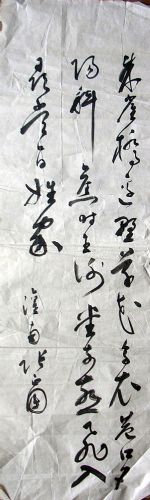 朱雀桥边野草花乌衣巷口夕
阳斜旧时王谢堂前燕飞入
寻常百姓家